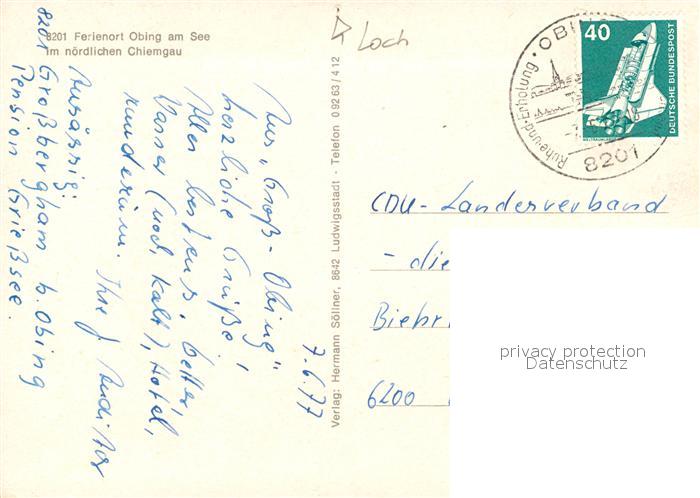 8201 Ferienort Obing am See
im nördlichen Chiemgau
Loch
OBING
Ruhe und Erholung
8201
40
DEUTSCHE BUNDESPOST
7.6.77
Aus "Groß-Obing"
herzliche Grüße!
Alles bestens, Wetter,
Wasser (noch kalt), Hotel,
rundherum. Ihre
Ansässig:
8201 Großbergham b. Obing
Pension Grießsee.
Verlag: Hermann Söllner, 8642 Ludwigsstadt - Telefon 0 92 63 / 4 12
CDU-Landesverband
- die
Biebr
6200
privacy protection
Datenschutz